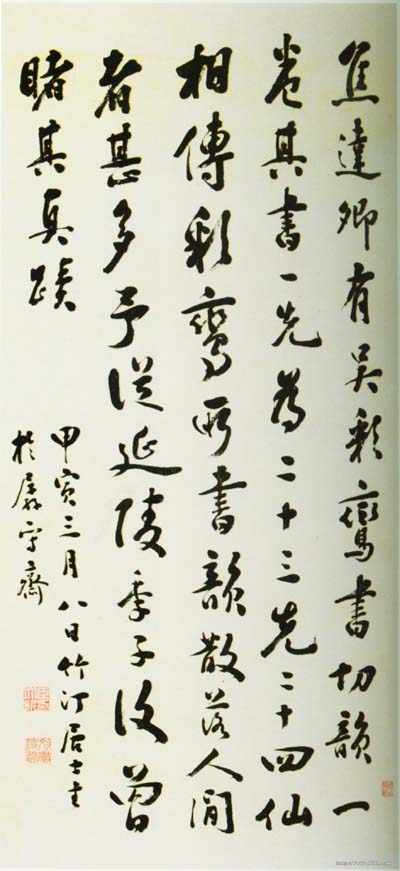 焦達卿有吳彩鸞書切韻一
卷其書一先為二十三先二十四仙
相傳彩鸞所書韻散落人間
者甚多予從延陵季子曾
睹其真蹟
甲寅三月八日竹汀居士
於孱守齋